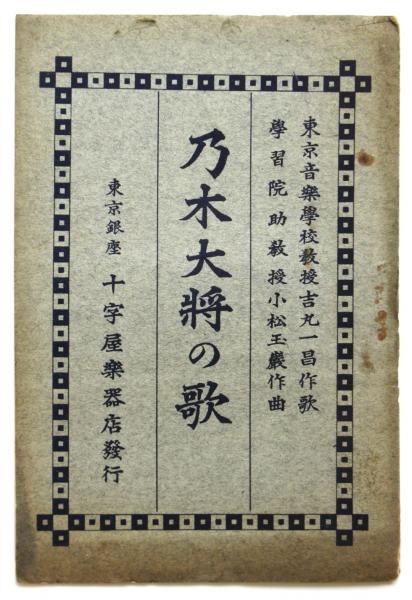 東京音樂學校教授吉丸一昌作歌
學習院助教授小松玉巖作曲
乃木大將の歌
東京銀座 十字屋樂器店發行